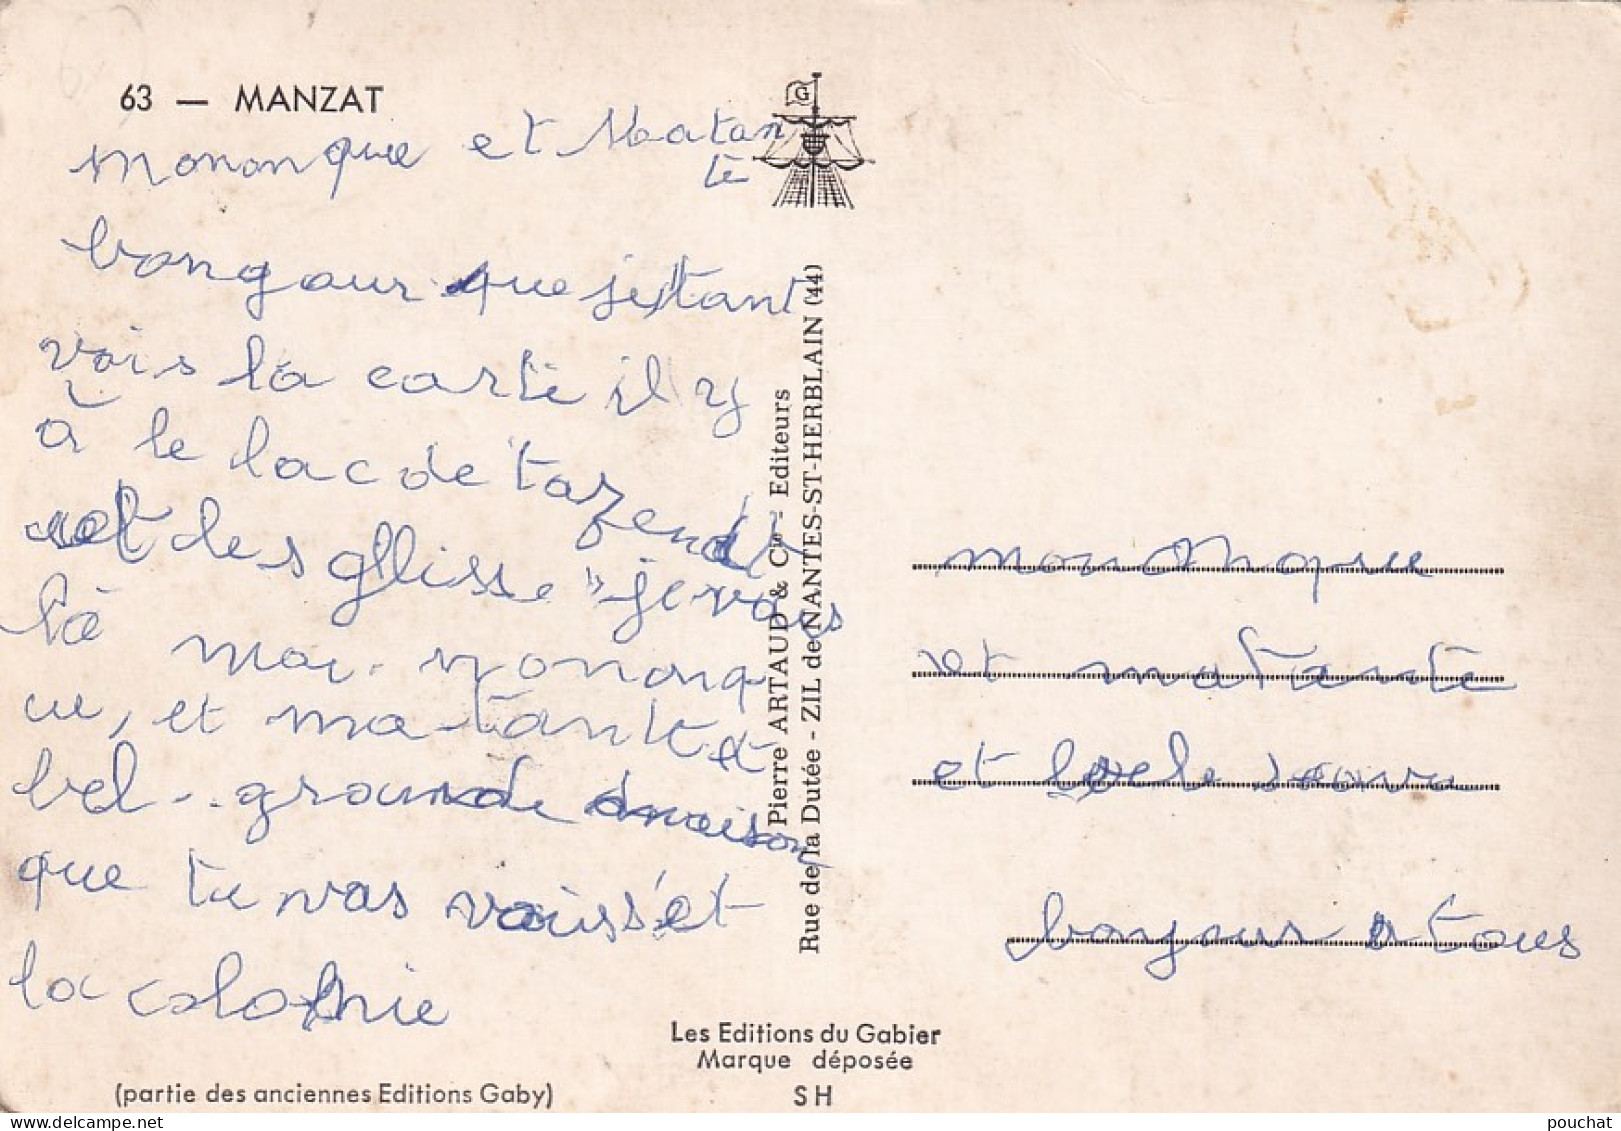 63 — MANZAT
Mononque et Matan
te
bongour que jetant
vois la carte il y
à le lac de tazenat
et des gllisse " je vais
là moi. mononq
ue, et ma tante
bel .. grounde maison
que tu vas voiss'et
la colonie
(partie des anciennes Editions Gaby)
G
Pierre ARTAUD & Cie - Editeurs
Rue de la Dutée - ZIL de NANTES-ST-HERBLAIN (44)
Les Editions du Gabier
Marque déposée
SH
mononque
et matante
et
bonjour a tous
pouchat